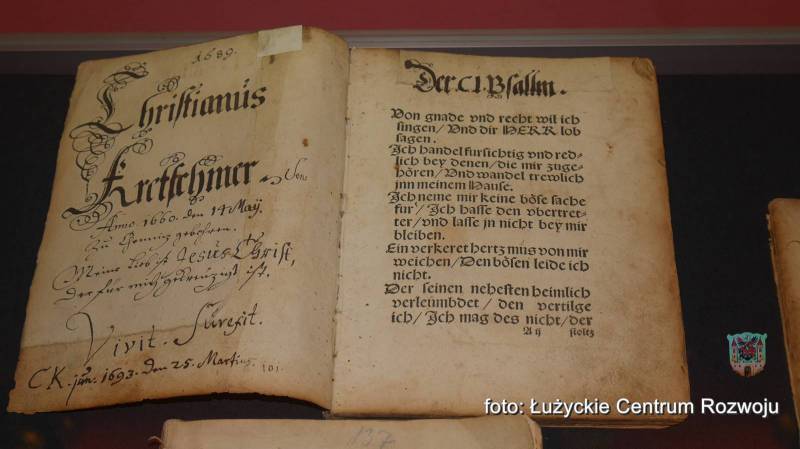 1689.
Christianus
Kretschmer
Anno 1660. den 14 Maij.
gebohren.
Meine Lieb ist Jesus Christ,
Der für mich gekreuzigt ist.
Vivit.
CK. jun. 1693. den 25. Martius
Der CI. Psallm.
Von gnade vnd recht wil ich
singen/ Vnd dir HERR lob
sagen.
Ich handel fursichtig vnd red-
lich bey denen/ die mir zuge-
hören/ Vnd wandel trewlich
jnn meinem Hause.
Ich neme mir keine böse sache
fur/ Ich hasse den vbertret-
ter/ vnd lasse jn nicht bey mir
bleiben.
Ein verkeret hertz mus von mir
weichen/ Den bösen leide ich
nicht.
Der seinen nehesten heimlich
verleumbdet/ den vertilge
ich/ Ich mag des nicht/ der
A ij stoltz
137
foto: Łużyckie Centrum Rozwoju